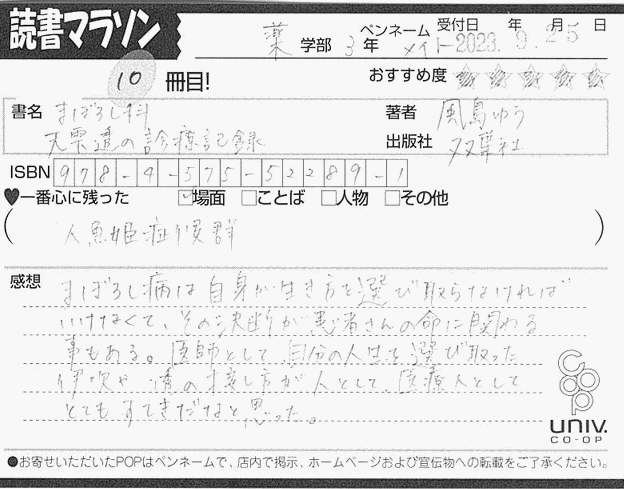 読書マラソン
薬 学部 3 年 ペンネーム メイト 受付日 2023年 9月 25日
10 冊目!
おすすめ度
書名 まぼろし科
天栗遣の診療記録
著者 風島ゆう
出版社 双葉社
ISBN 978-4-575-52289-1
♥一番心に残った □場面 □ことば □人物 □その他
( 人魚姫症候群 )
感想 まぼろし病は自身が生き方を選び取らなければ
いけなくて、その決断が患者さんの命に関わる
事もある。医師として、自分の人生を選び取った
伊吹や遣の接し方が人として、医療人として
とてもすてきだなと思った。
coop
UNIV.
CO-OP
●お寄せいただいたPOPはペンネームで、店内で掲示、ホームページおよび宣伝物への転載をご了承ください。